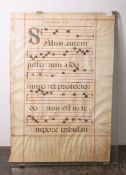 Salus autem
iusto rum a do
mino et protector
eo rum est in te
mpore tribulati